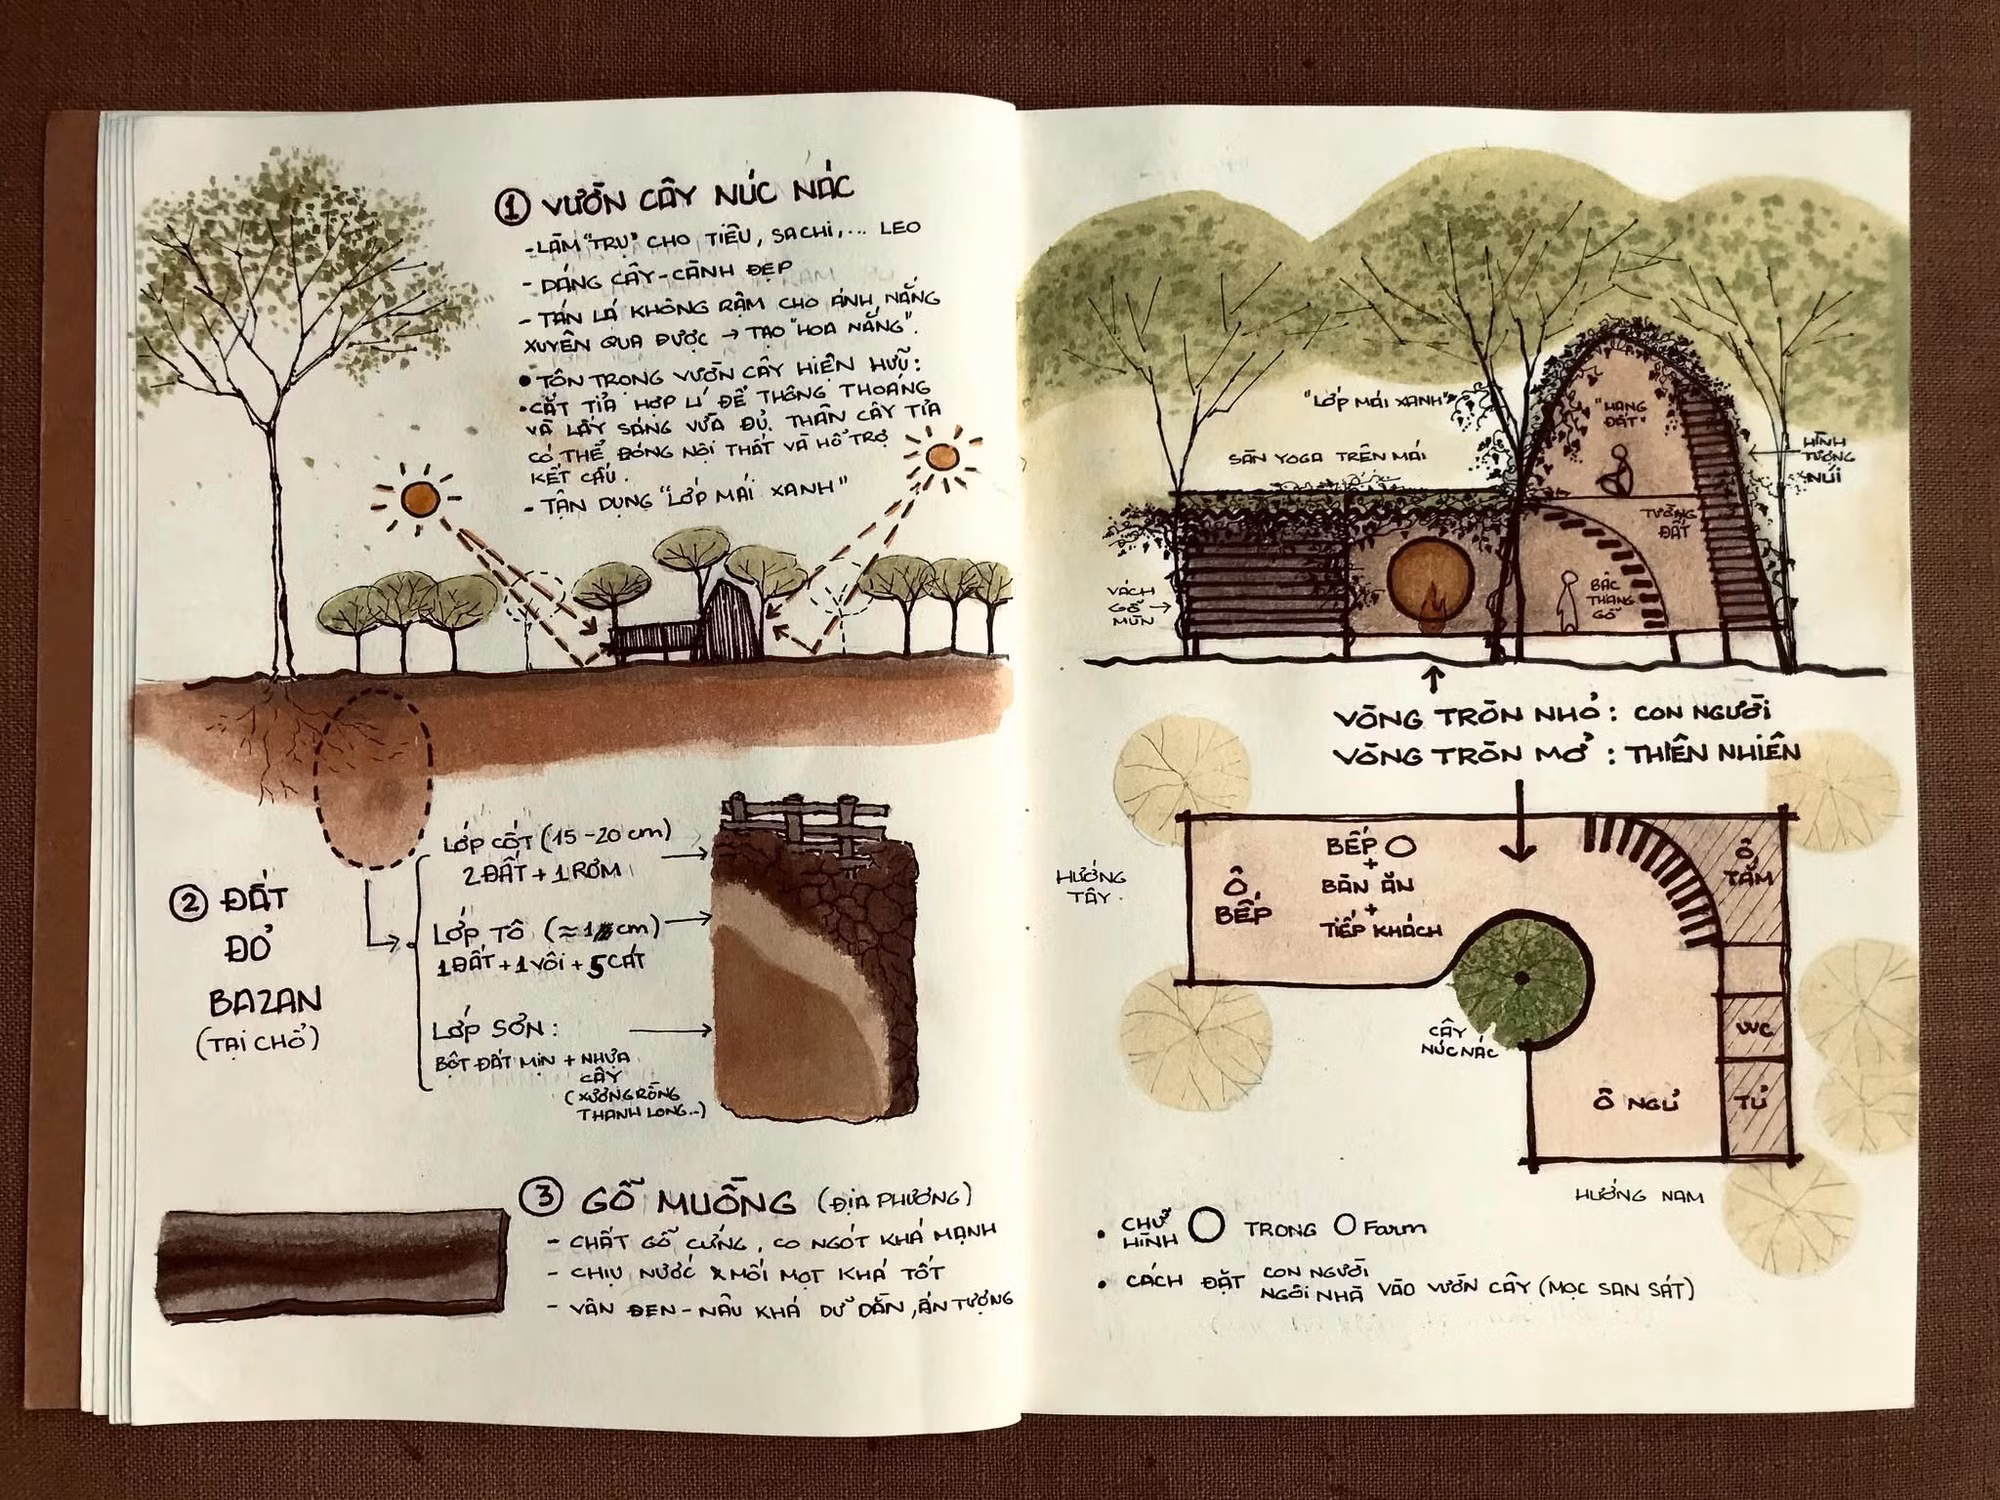 ① VƯỜN CÂY NÚC NÁC
- LÀM "TRỤ" CHO TIÊU, SACHI,... LEO
- DÁNG CÂY - CÀNH ĐẸP
- TÁN LÁ KHÔNG RẬM CHO ÁNH NẮNG
XUYÊN QUA ĐƯỢC → TẠO "HOA NẮNG".
• TÔN TRỌNG VƯỜN CÂY HIỆN HỮU:
• CẮT TỈA HỢP LÍ ĐỂ THÔNG THOÁNG
VÀ LẤY SÁNG VỪA ĐỦ. THÂN CÂY TỈA
CÓ THỂ ĐÓNG NỘI THẤT VÀ HỖ TRỢ
KẾT CẤU.
- TẬN DỤNG "LỚP MÁI XANH"
② ĐẤT
ĐỎ
BAZAN
(TẠI CHỖ)
LỚP CỐT (15 - 20 cm)
2 ĐẤT + 1 RƠM
LỚP TÔ (≈ 1 cm)
1 ĐẤT + 1 VÔI + 5 CÁT
LỚP SƠN:
BỘT ĐẤT MỊN + NHỰA
CÂY
(XƯƠNG RỒNG
THANH LONG...)
③ GỖ MUỒNG (ĐỊA PHƯƠNG)
- CHẤT GỖ CỨNG, CO NGÓT KHÁ MẠNH
- CHỊU NƯỚC & MỐI MỌT KHÁ TỐT
- VÂN ĐEN - NÂU KHÁ DỮ DẰN, ẤN TƯỢNG
"LỚP MÁI XANH"
"HANG
ĐẤT"
HÌNH
TƯỢNG
NÚI
SÂN YOGA TRÊN MÁI
TƯỜNG
ĐẤT
VÁCH
GỖ
MUN
BẬC
THANG
GỖ
VÒNG TRÒN NHỎ: CON NGƯỜI
VÒNG TRÒN MỞ: THIÊN NHIÊN
HƯỚNG
TÂY.
Ô
BẾP
BẾP O
+
BÀN ĂN
+
TIẾP KHÁCH
Ô
TẮM
CÂY
NÚC NÁC
WC
Ô NGỦ
TỦ
HƯỚNG NAM
• CHỮ
HÌNH O TRONG O Farm
• CÁCH ĐẶT CON NGƯỜI
NGÔI NHÀ VÀO VƯỜN CÂY (MỌC SAN SÁT)